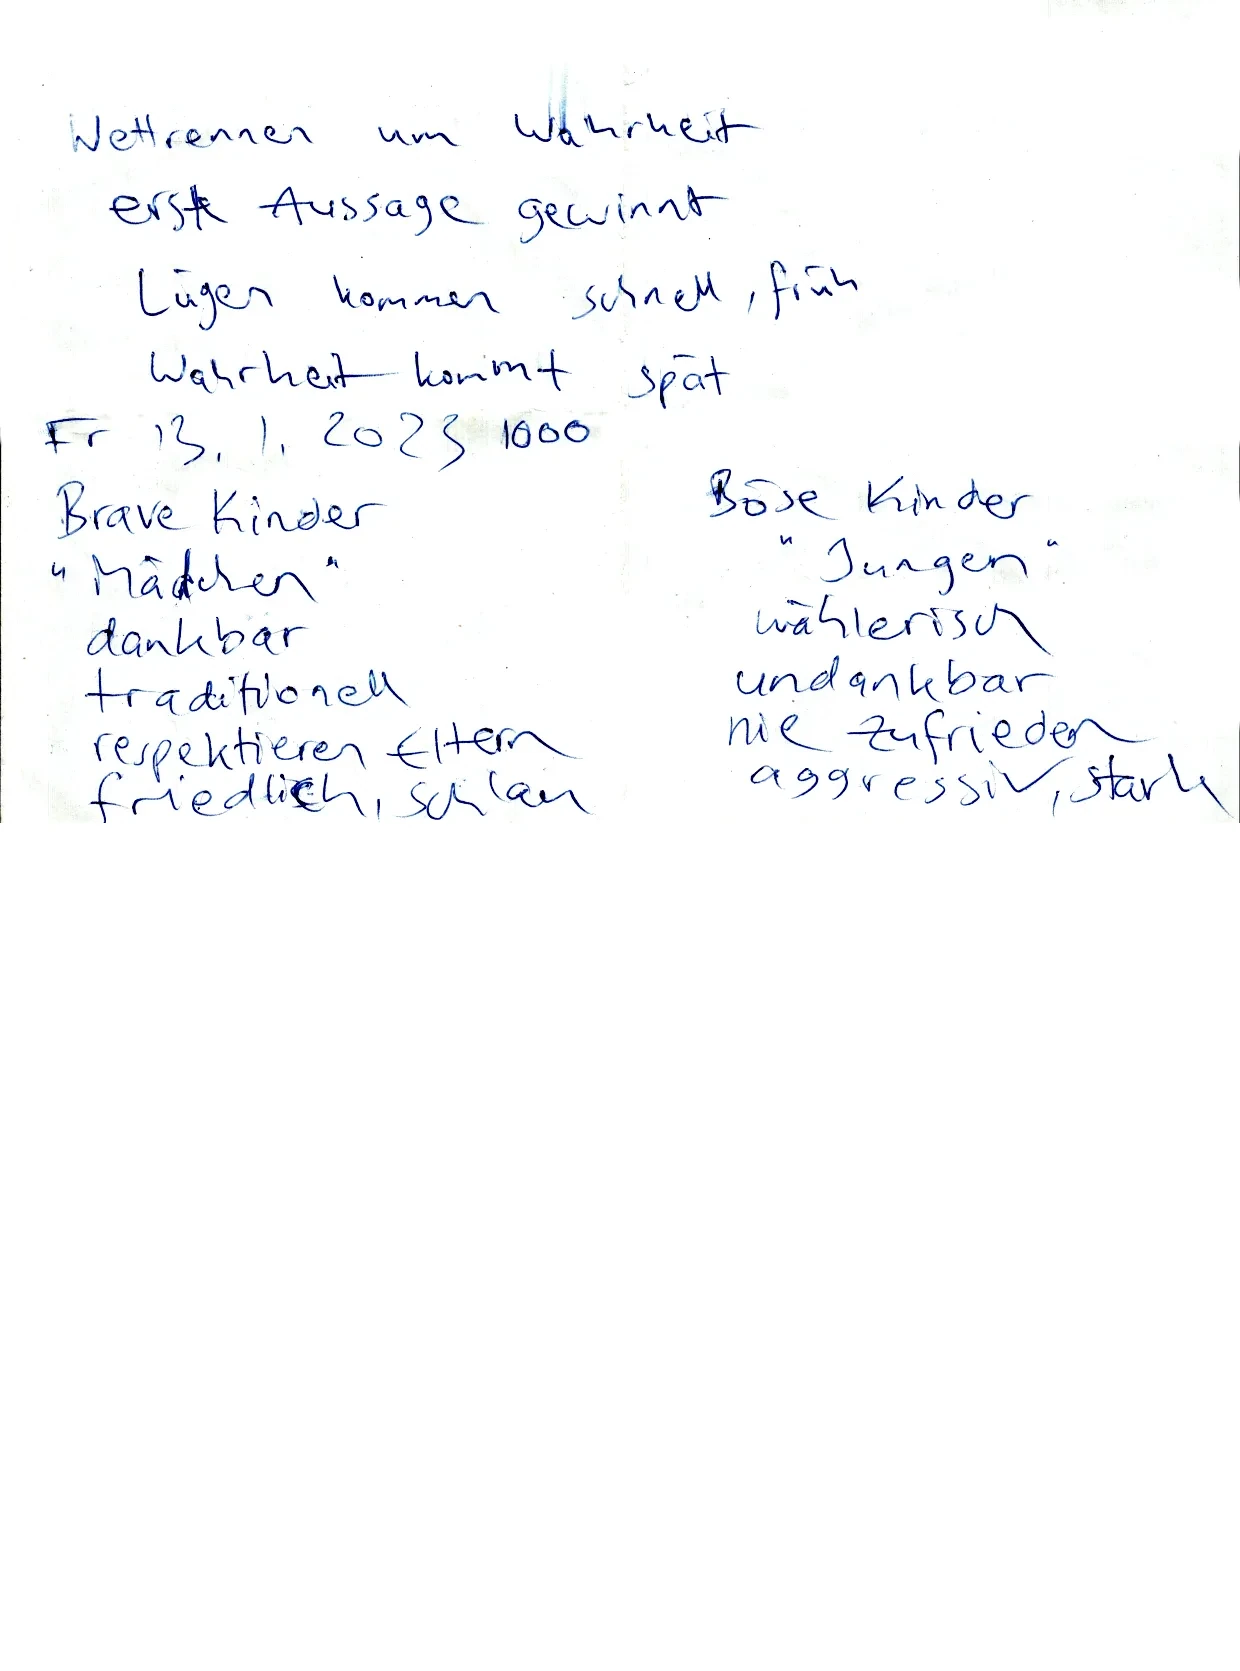 Wettrennen um Wahrheit
erste Aussage gewinnt
Lügen kommen schnell, früh
Wahrheit kommt spät
Fr 13.1.2023 1000
Brave Kinder
"Mädchen"
dankbar
traditionell
respektieren Eltern
friedlich, schlau
Böse Kinder
"Jungen"
wählerisch
undankbar
nie zufrieden
aggressiv, stark